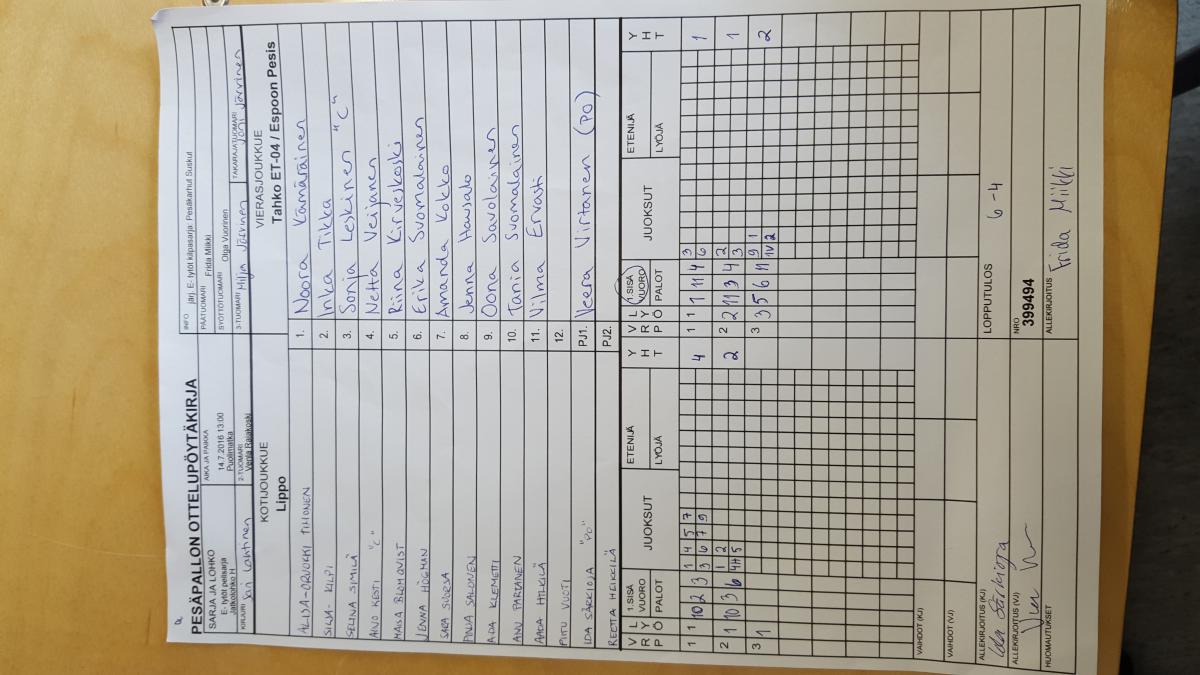 PESÄPALLON OTTELUPÖYTÄKIRJA
SARJA JA LOHKO
E- tytöt pelisarja
Jatkolohko H
AIKA JA PAIKKA
14.7.2016 13:00
Puolimatka
INFO järj. E- tytöt kilpasarja: Pesäkarhut Suskut
PÄÄTUOMARI Frida Miikki
SYÖTTÖTUOMARI Olga Vuorinen
KIRJURI Sari Lahtinen
2-TUOMARI Venla Rajakoski
3-TUOMARI Milja Järvinen
TAKARAJATUOMARI Joni Järvinen
KOTIJOUKKUE
Lippo
VIERASJOUKKUE
Tahko ET-04 / Espoon Pesis
TIHONEN 1. Noora Kämäräinen
KILPI 2. Inka Tikka
SELINA SIMILÄ 3. Sonja Leskinen "C"
AINO KESTI "C" 4. Netta Veijanen
MAISA BLOMQVIST 5. Riina Kirveskoski
JENNA HÖGMAN 6. Erika Suomalainen
SARA SUORSA 7. Amanda Kokko
PINJA SALONEN 8. Jenna Hausalo
ADA KLEMETTI 9. Oona Savolainen
ANU PARTANEN 10. Tania Suomalainen
AADA HILKILÄ 11. Vilma Ervasti
VUOTI 12.
IDA SÄRKIOJA "PO" PJ1. Veera Virtanen (PO)
REETTA HEIKKILÄ PJ2.
VRP LYÖ 1.SISÄ VUORO PALOT JUOKSUT ETENIJÄ LYÖJÄ YHT
VRP LYÖ 1.SISÄ VUORO PALOT JUOKSUT ETENIJÄ LYÖJÄ YHT
1 1 10 2 3 1 4 5 7 4
3 6 7 9
1 1 1 11 4 3 1
6
2 1 10 3 6 1 2 2
4H 5
2 2 11 3 4 2 1
3
3 1
3 3 5 6 11 9 1 2
1V 2
VAIHDOT (KJ)
VAIHDOT (VJ)
ALLEKIRJOITUS (KJ) Ida Särkioja
LOPPUTULOS 6-4
ALLEKIRJOITUS (VJ)
NRO
399494
HUOMAUTUKSET
ALLEKIRJOITUS Frida Miikki